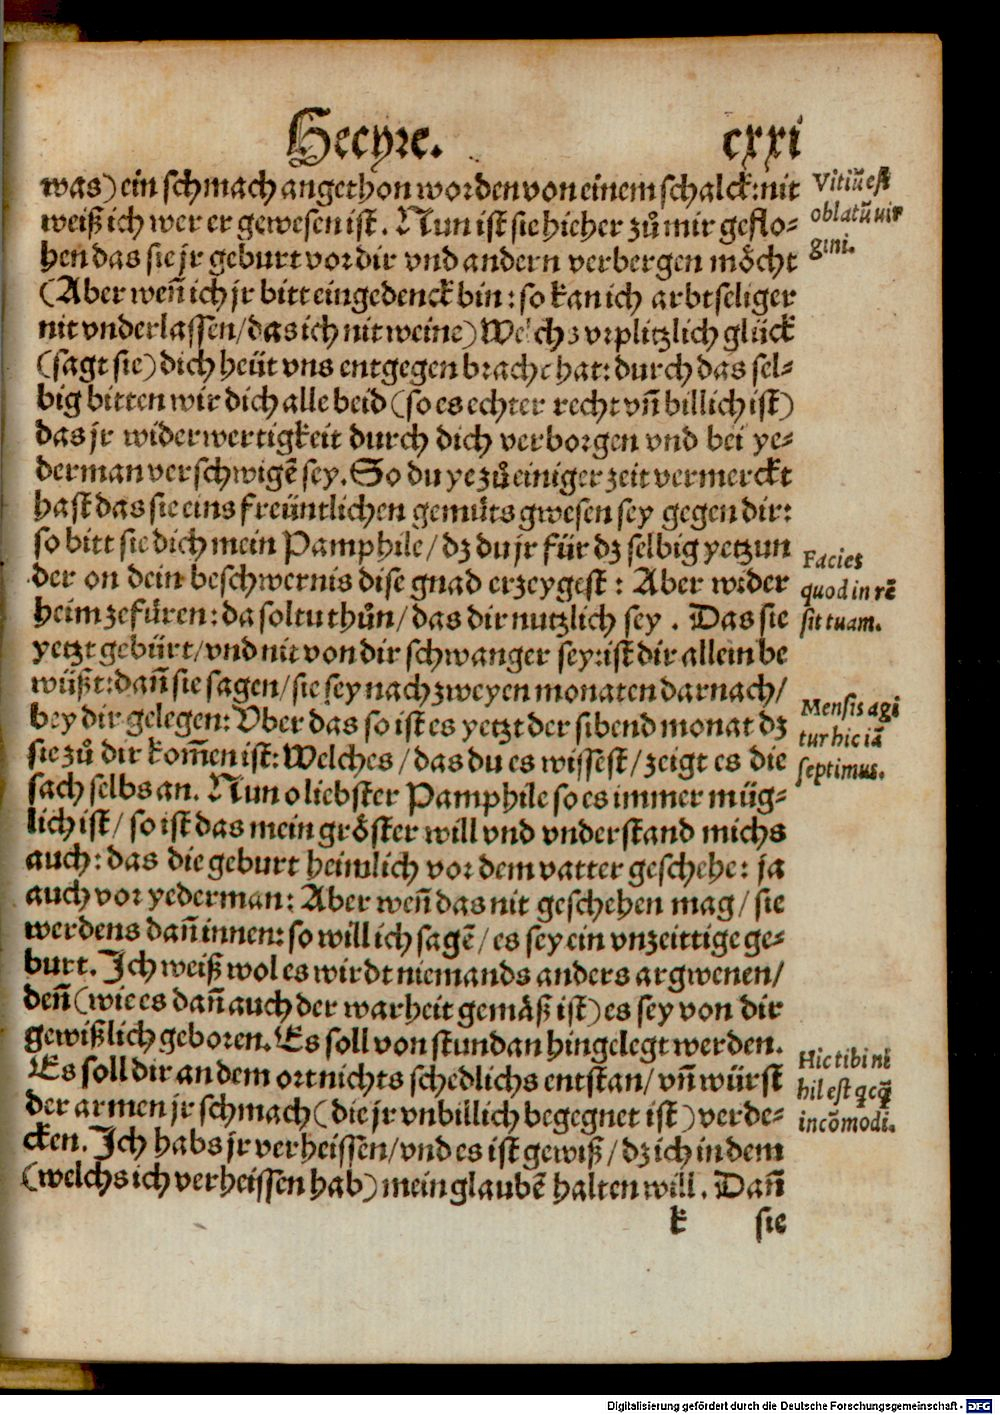 Hecyre. cxxi
was) ein schmach angethon worden von einem schalck: nit
weiß ich wer er gewesen ist. Nun ist sie hieher zů mir geflo-
hen das sie jr geburt vor dir vnd andern verbergen möcht
(Aber weñ ich jr bitt eingedenck bin: so kan ich arbtseliger
nit vnderlassen/ das ich nit weine) Welchs vrplitzlich glück
(sagt sie) dich heüt vns entgegen bracht hat: durch das sel-
big bitten wir dich alle beid (so es echter recht vñ billich ist)
das jr widerwertigkeit durch dich verborgen vnd bei ye-
derman verschwigẽ sey. So du ye zů einiger zeit vermerckt
hast das sie eins freüntlichen gemüts gwesen sey gegen dir:
so bitt sie dich mein Pamphile/ dz du jr für dz selbig yetzun
der on dein beschwernis dise gnad erzeygest: Aber wider
heim zefüren: da soltu thůn/ das dir nutzlich sey. Das sie
yetzt gebürt/ vnd nit von dir schwanger sey: ist dir allein be
wüßt: dañ sie sagen/ sie sey nach zweyen monaten darnach/
bey dir gelegen: Vber das so ist es yetzt der sibend monat dz
sie zů dir kom̃en ist: Welches/ das du es wissest/ zeigt es die
sach selbs an. Nun o liebster Pamphile so es immer müg-
lich ist/ so ist das mein gröster will vnd vnderstand michs
auch: das die geburt heimlich vor dem vatter geschehe: ja
auch vor yederman: Aber weñ das nit geschehen mag/ sie
werdens dañ innen: so will ich sagẽ/ es sey ein vnzeittige ge-
burt. Ich weiß wol es wirdt niemands anders argwenen/
deñ (wie es dañ auch der warheit gemäß ist) es sey von dir
gewißlich geboren. Es soll von stund an hingelegt werden.
Es soll dir an dem ort nichts schedlichs entstan/ vñ würst
der armen jr schmach (die jr vnbillich begegnet ist) verde-
cken. Ich habs jr verheissen/ vnd es ist gewiß/ dz ich in dem
(welchs ich verheissen hab) mein glaubẽ halten will. Dañ
k sie
Vitiũ est
oblatũ uir
gini.
Facies
quod in rẽ
sit tuam.
Mensis agi
tur hic iã
septimus.
Hic tibi ni
hil est qcq̃
incõmodi.
Digitalisierung gefördert durch die Deutsche Forschungsgemeinschaft - DFG